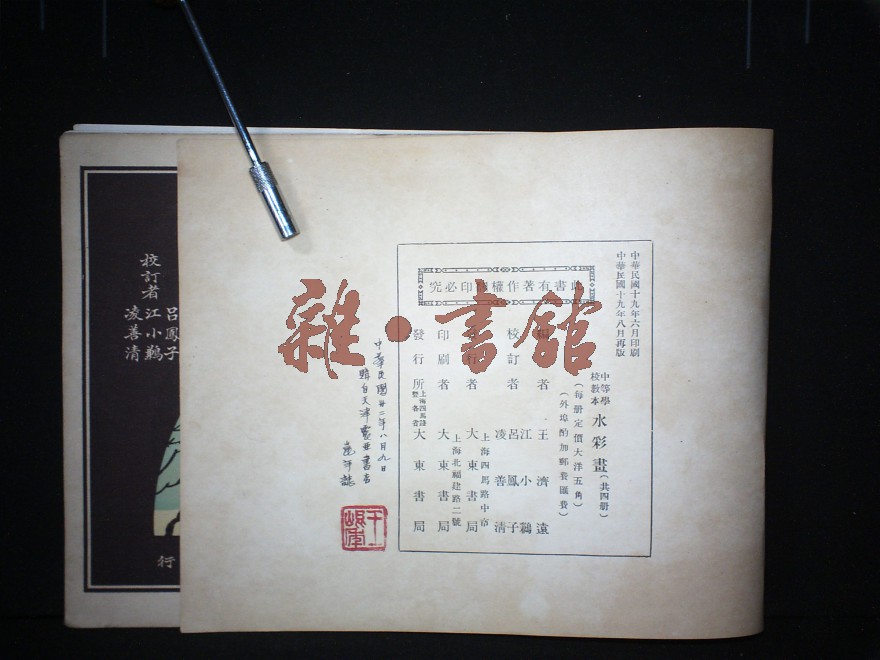 中華民國十九年六月印刷
中華民國十九年八月再版
中等學校教本 水彩畫（共四册）
（每册定價大洋五角）
（外埠酌加郵費匯費）
此書有著作權翻印必究
編者 王濟遠
校訂者 江小鶼
呂鳳子
凌善清
發行者 大東書局
上海四馬路中市
上海北福建路二號
印刷者 大東書局
發行所 大東書局
中華民國廿二年八月九日
購自天津
雜·書館
校訂者
呂鳳子
江小鶼
凌善清
行